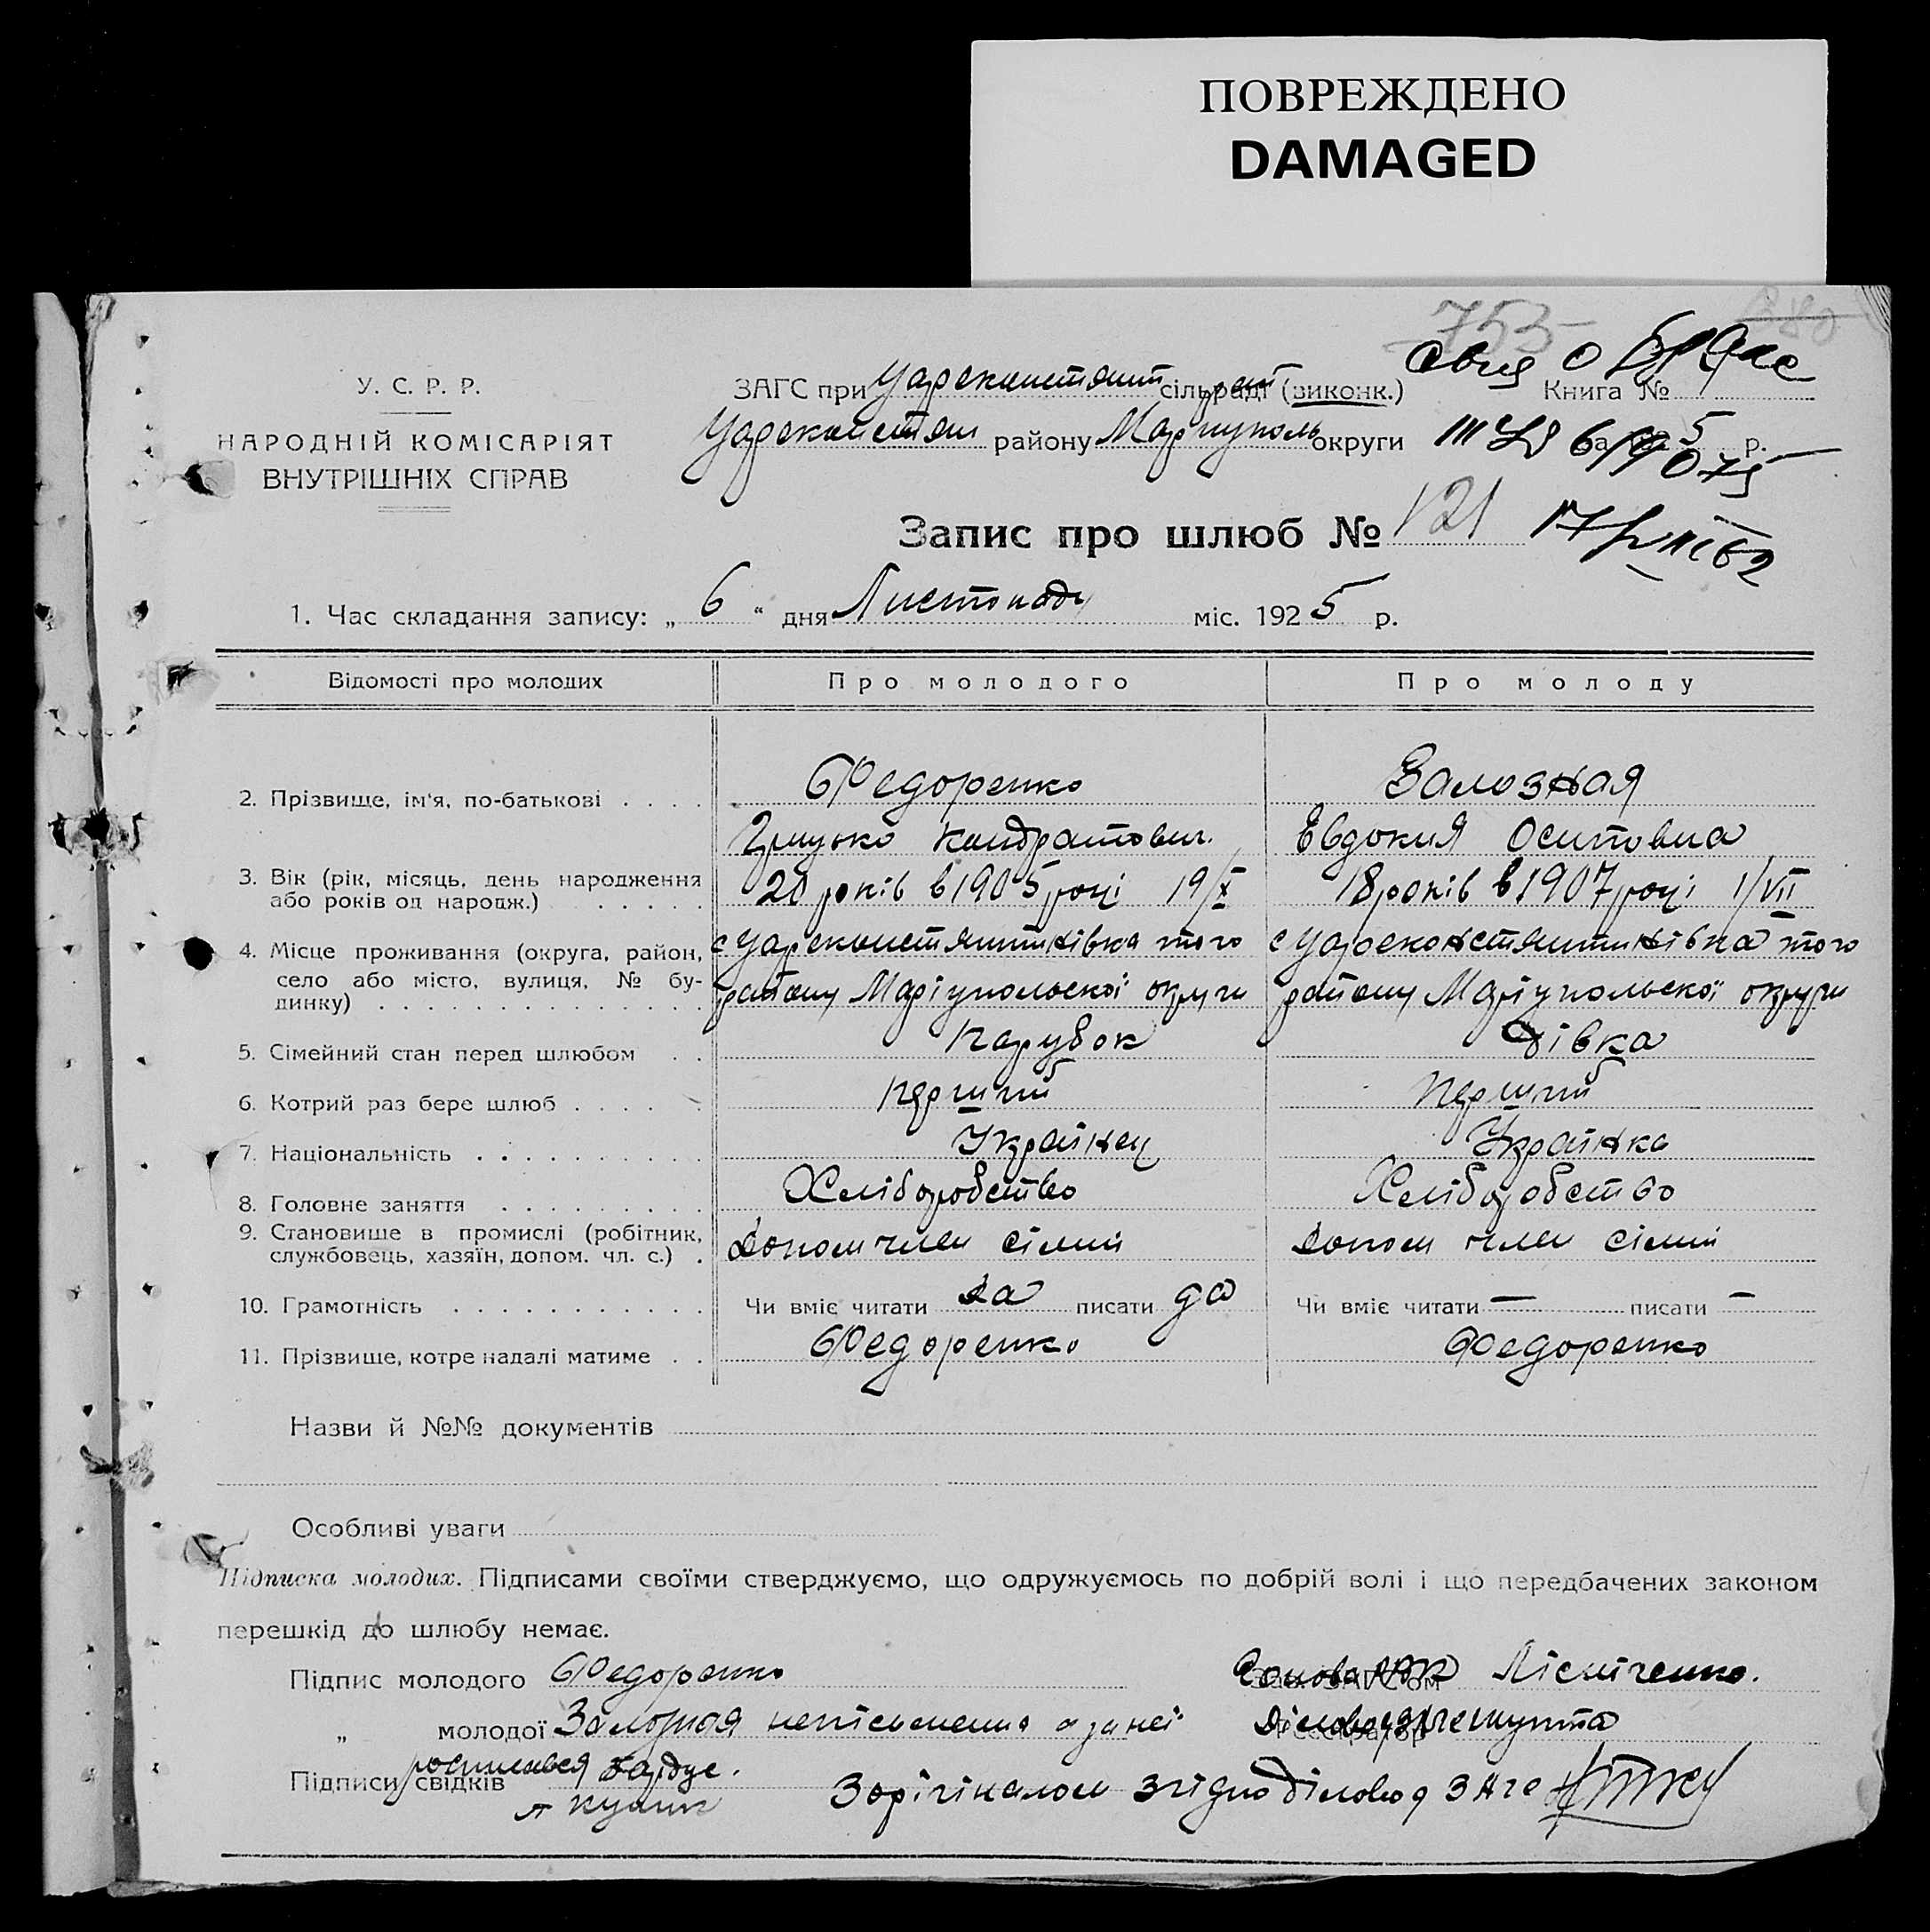 ПОВРЕЖДЕНО
DAMAGED
753
У. С. Р. Р.
НАРОДНІЙ КОМІСАРІЯТ
ВНУТРІШНІХ СПРАВ
ЗАГС при Цареконстянт сільраді (виконк.) Книга №
Цареконстян району Маріуполь округи за 192 5 р.
Запис про шлюб № 121
1. Час складання запису: „ 6 “ дня Листопада міс. 1925 р.
Відомості про молодих Про молодого Про молоду
2. Прізвище, ім'я, по-батькові Федоренко Залозная
Грицько Кондратович. Евдокия Осиповна
3. Вік (рік, місяць, день народження або років од народж.) 20 років в 1905 році 19/X 18 років в 1907 році 1/VII
4. Місце проживання (округа, район, с Цареконстянтинівка того с Царсконстянтинівка того
село або місто, вулиця, № будинку) району Маріупольскої округи району Маріупольскої округи
5. Сімейний стан перед шлюбом Парубок Дівка
6. Котрий раз бере шлюб перший перший
7. Національність Українец Українка
8. Головне заняття Хліборобство Хліборобство
9. Становище в промислі (робітник, службовець, хазяїн, допом. чл. с.) допом член сімии допом член сімии
10. Грамотність Чи вміє читати да писати да Чи вміє читати — писати —
11. Прізвище, котре надалі матиме Федоренко Федоренко
Назви й №№ документів
Особливі уваги
Підписка молодих. Підписами своїми стверджуємо, що одружуємось по добрій волі і що передбачених законом
перешкід до шлюбу немає.
Підпис молодого Федоренко Голова
„ молодої Залозная неписьменна а за неї
росписався
Підписи свідків
Кулик З орігіналом згідно діловод ЗАГС